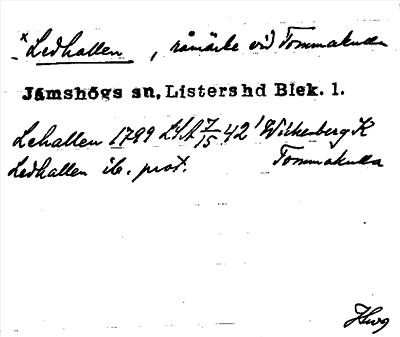 * Ledhallen, råmärke vid Tommakulla
Jämshögs sn, Listers hd Blek. l.
Lehallen 1789 LSA 7/15 42¹ Wickenberg K
Ledhallen ib. prot. Tommakulla
Hwg